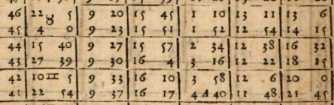 46 22 ♉ 5 9 20 15 45 1 10 13 11 13 6
45 4 0 9 23 15 51 1 52 12 54 14 15
44 15 40 9 27 15 57 2 34 12 38 16 32
43 27 39 9 30 16 4 3 16 12 22 18 35
42 10 II 5 9 33 16 10 3 58 12 6 20
41 22 54 9 37 16 17 4 40 11 48 21 45